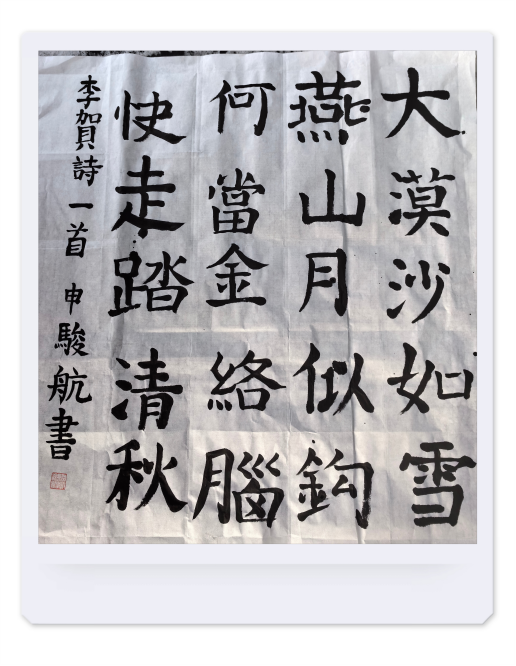 大漠沙如雪
燕山月似鈎
何當金絡腦
快走踏清秋
李賀詩一首 申駿航書